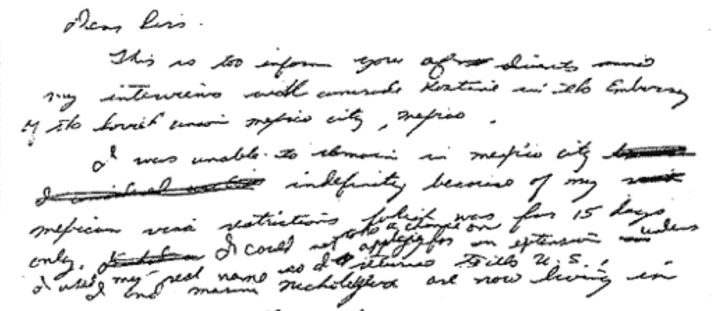 Dear Sirs.
This is too inform you of events since
my interviews with comrade Kostine in the Embassy
of the Soviet union mexico city, Mexico.
I was unable to remain in mexico city
indefinity because of my
mexican visa restrictions which was for 15 days
only. I could not take a chance on applying for an extension unless
I used my real name so I returned to the U.S.
I and marina nicholyeva are now living in